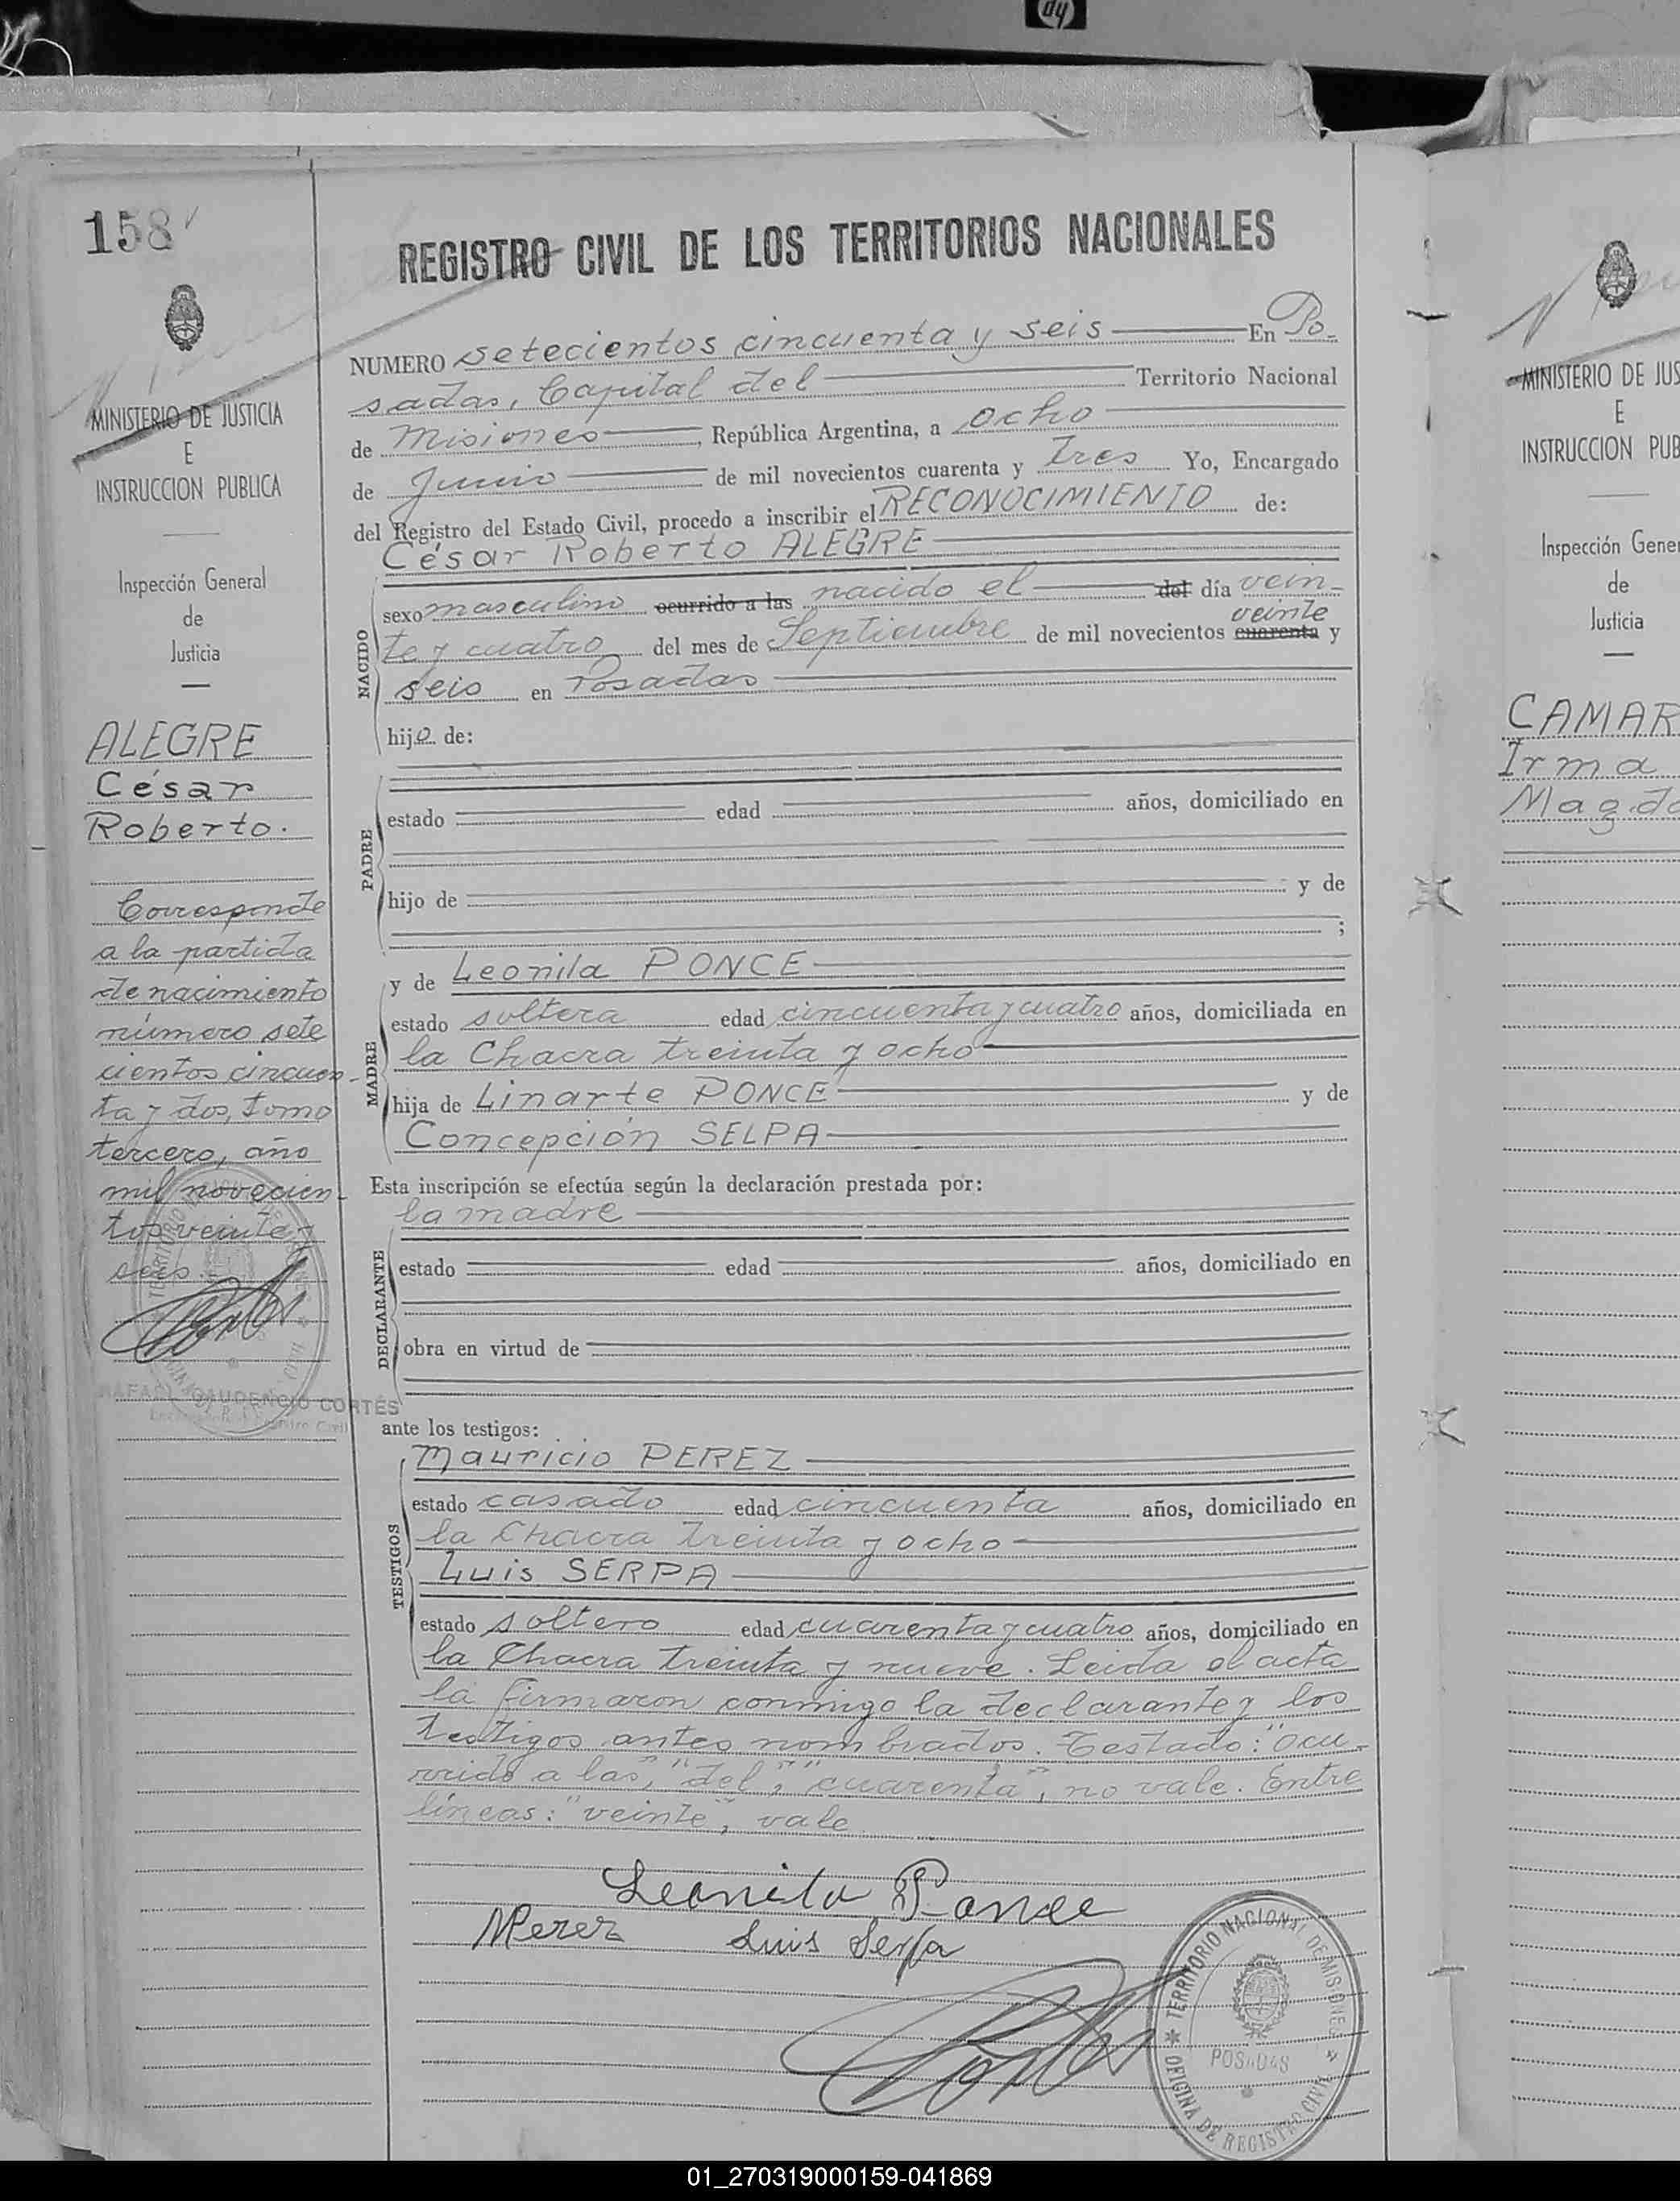 hp
158
REGISTRO CIVIL DE LOS TERRITORIOS NACIONALES
MINISTERIO DE JUSTICIA
E
INSTRUCCION PUBLICA
Inspección General
de
Justicia
ALEGRE
César
Roberto.
Corresponde
a la partida
de nacimiento
número sete
cientos cincuen-
ta y dos, tomo
tercero, año
mil novecien-
tos veinte y
seis.
RAFAEL GAUDENCIO CORTÉS
NUMERO setecientos cincuenta y seis En Po-
sadas, Capital del Territorio Nacional
de Misiones, República Argentina, a ocho
de Junio de mil novecientos cuarenta y tres Yo, Encargado
del Registro del Estado Civil, procedo a inscribir el RECONOCIMIENTO de:
César Roberto ALEGRE
NACIDO
sexo masculino ocurrido a las nacido el del día vein-
veinte
te y cuatro del mes de Septiembre de mil novecientos cuarenta y
seis en Posadas
hijo de:
PADRE
estado edad años, domiciliado en
hijo de y de
;
MADRE
y de Leonila PONCE
estado soltera edad cincuenta y cuatro años, domiciliada en
la Chacra treinta y ocho
hija de Linarte PONCE y de
Concepción SELPA
Esta inscripción se efectúa según la declaración prestada por:
la madre
DECLARANTE
estado edad años, domiciliado en
obra en virtud de
ante los testigos:
TESTIGOS
Mauricio PEREZ
estado casado edad cincuenta años, domiciliado en
la Chacra treinta y ocho
Luis SERPA
estado soltero edad cuarenta y cuatro años, domiciliado en
la Chacra treinta y nueve. Leida el acta
la firmaron conmigo la declarante y los
testigos antes nombrados. Testado: "ocu-
rrido a las", "del", "cuarenta", no vale. Entre
líneas: "veinte", vale
Leonila Ponce
MPerez Luis Serpa
TERRITORIO NACIONAL DE MISIONES
POSADAS
OFICINA DE REGISTRO CIVIL
MINISTERIO DE JUS
E
INSTRUCCION PUB
Inspección Gener
de
Justicia
CAMAR
Irma
Magda
01_270319000159-041869